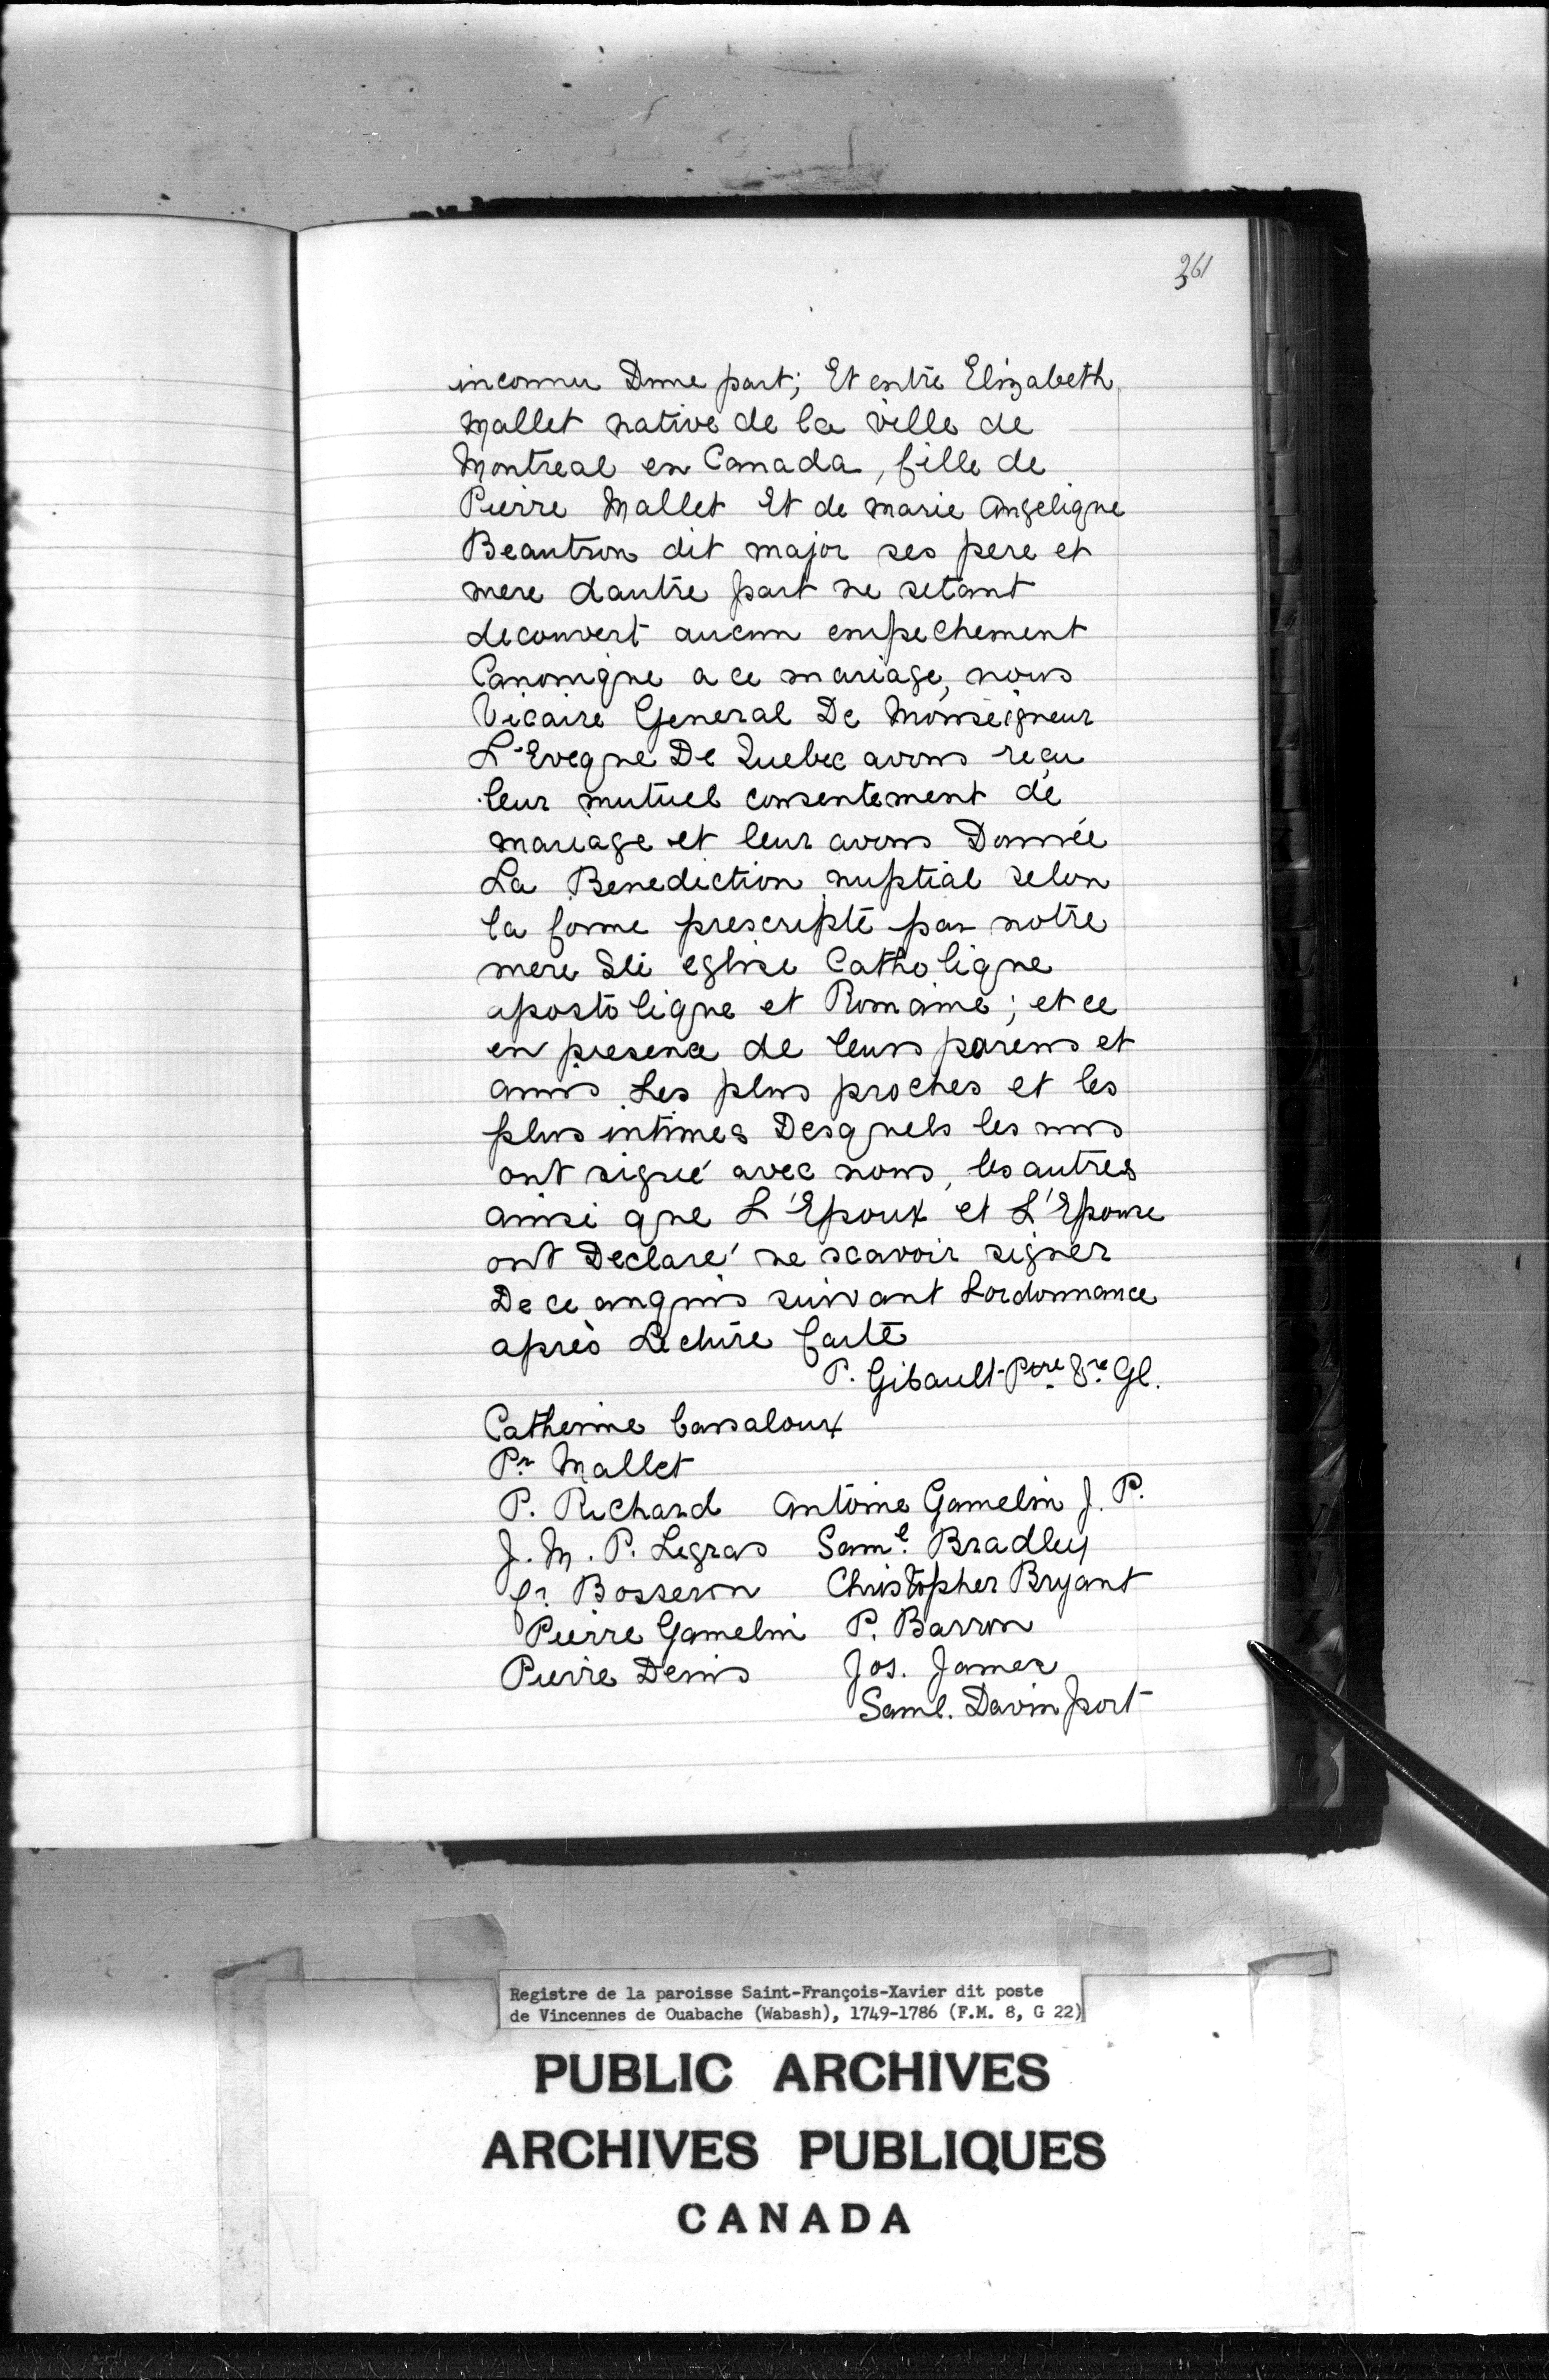 361
inconnu Dune part; Et entre Elizabeth
Mallet native de la ville de
Montreal en Canada, fille de
Pierre Mallet Et de marie Angelique
Beautron dit major ses pere et
mere dautre part ne setant
decouvert aucun empechement
Canonique a ce mariage, nous
Vicaire General De Monseigneur
L'Eveque De Quebec avons reçu
leur mutuel consentement de
mariage et leur avons Donnée
La Benediction nuptial selon
la forme prescripte par notre
mere Ste eglise Catholique
apostolique et Romaine; et ce
en presence de leurs parens et
amis Les plus proches et les
plus intimes Desquels les uns
ont signé avec nous, les autres
ainsi que L'Epoux et L'Epouse
ont Declaré ne scavoir signer
De ce enquis suivant Lordonnance
après Lecture faite
P. Gibault Ptre Vre Gl.
Catherine Cassaloux
Pr Mallet
P. Richard Antoine Gamelin J. P.
J. M. P. Legras Saml. Bradley
fr. Bosseron Christopher Bryant
Pierre Gamelin P. Barron
Pierre Denis Jos. James
Saml. Davinport
Registre de la paroisse Saint-François-Xavier dit poste
de Vincennes de Ouabache (Wabash), 1749-1786 (F.M. 8, G 22)
PUBLIC ARCHIVES
ARCHIVES PUBLIQUES
CANADA